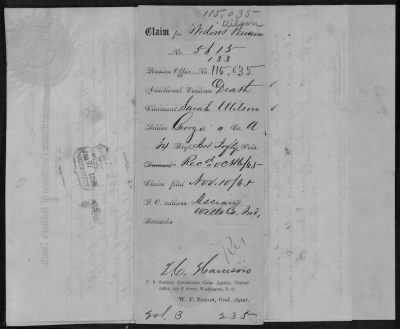 115,035
Wilson
Claim for Widow's Pension
No. 5115
133
Pension Office, No. 115,035
Additional Evidence Death
Claimant Sarah Wilson
Soldier George " Co. A
34 Regt. Ind Infty Vols.
Rec'd Oct 16/65
Claim filed Nov. 10/65
P. O. address
Wells Co. Ind,
Remarks
U. S. Sanitary Commission Claim Agency, Central
Office, 244 F Street, Washington, D. C.
Vol. 3 235